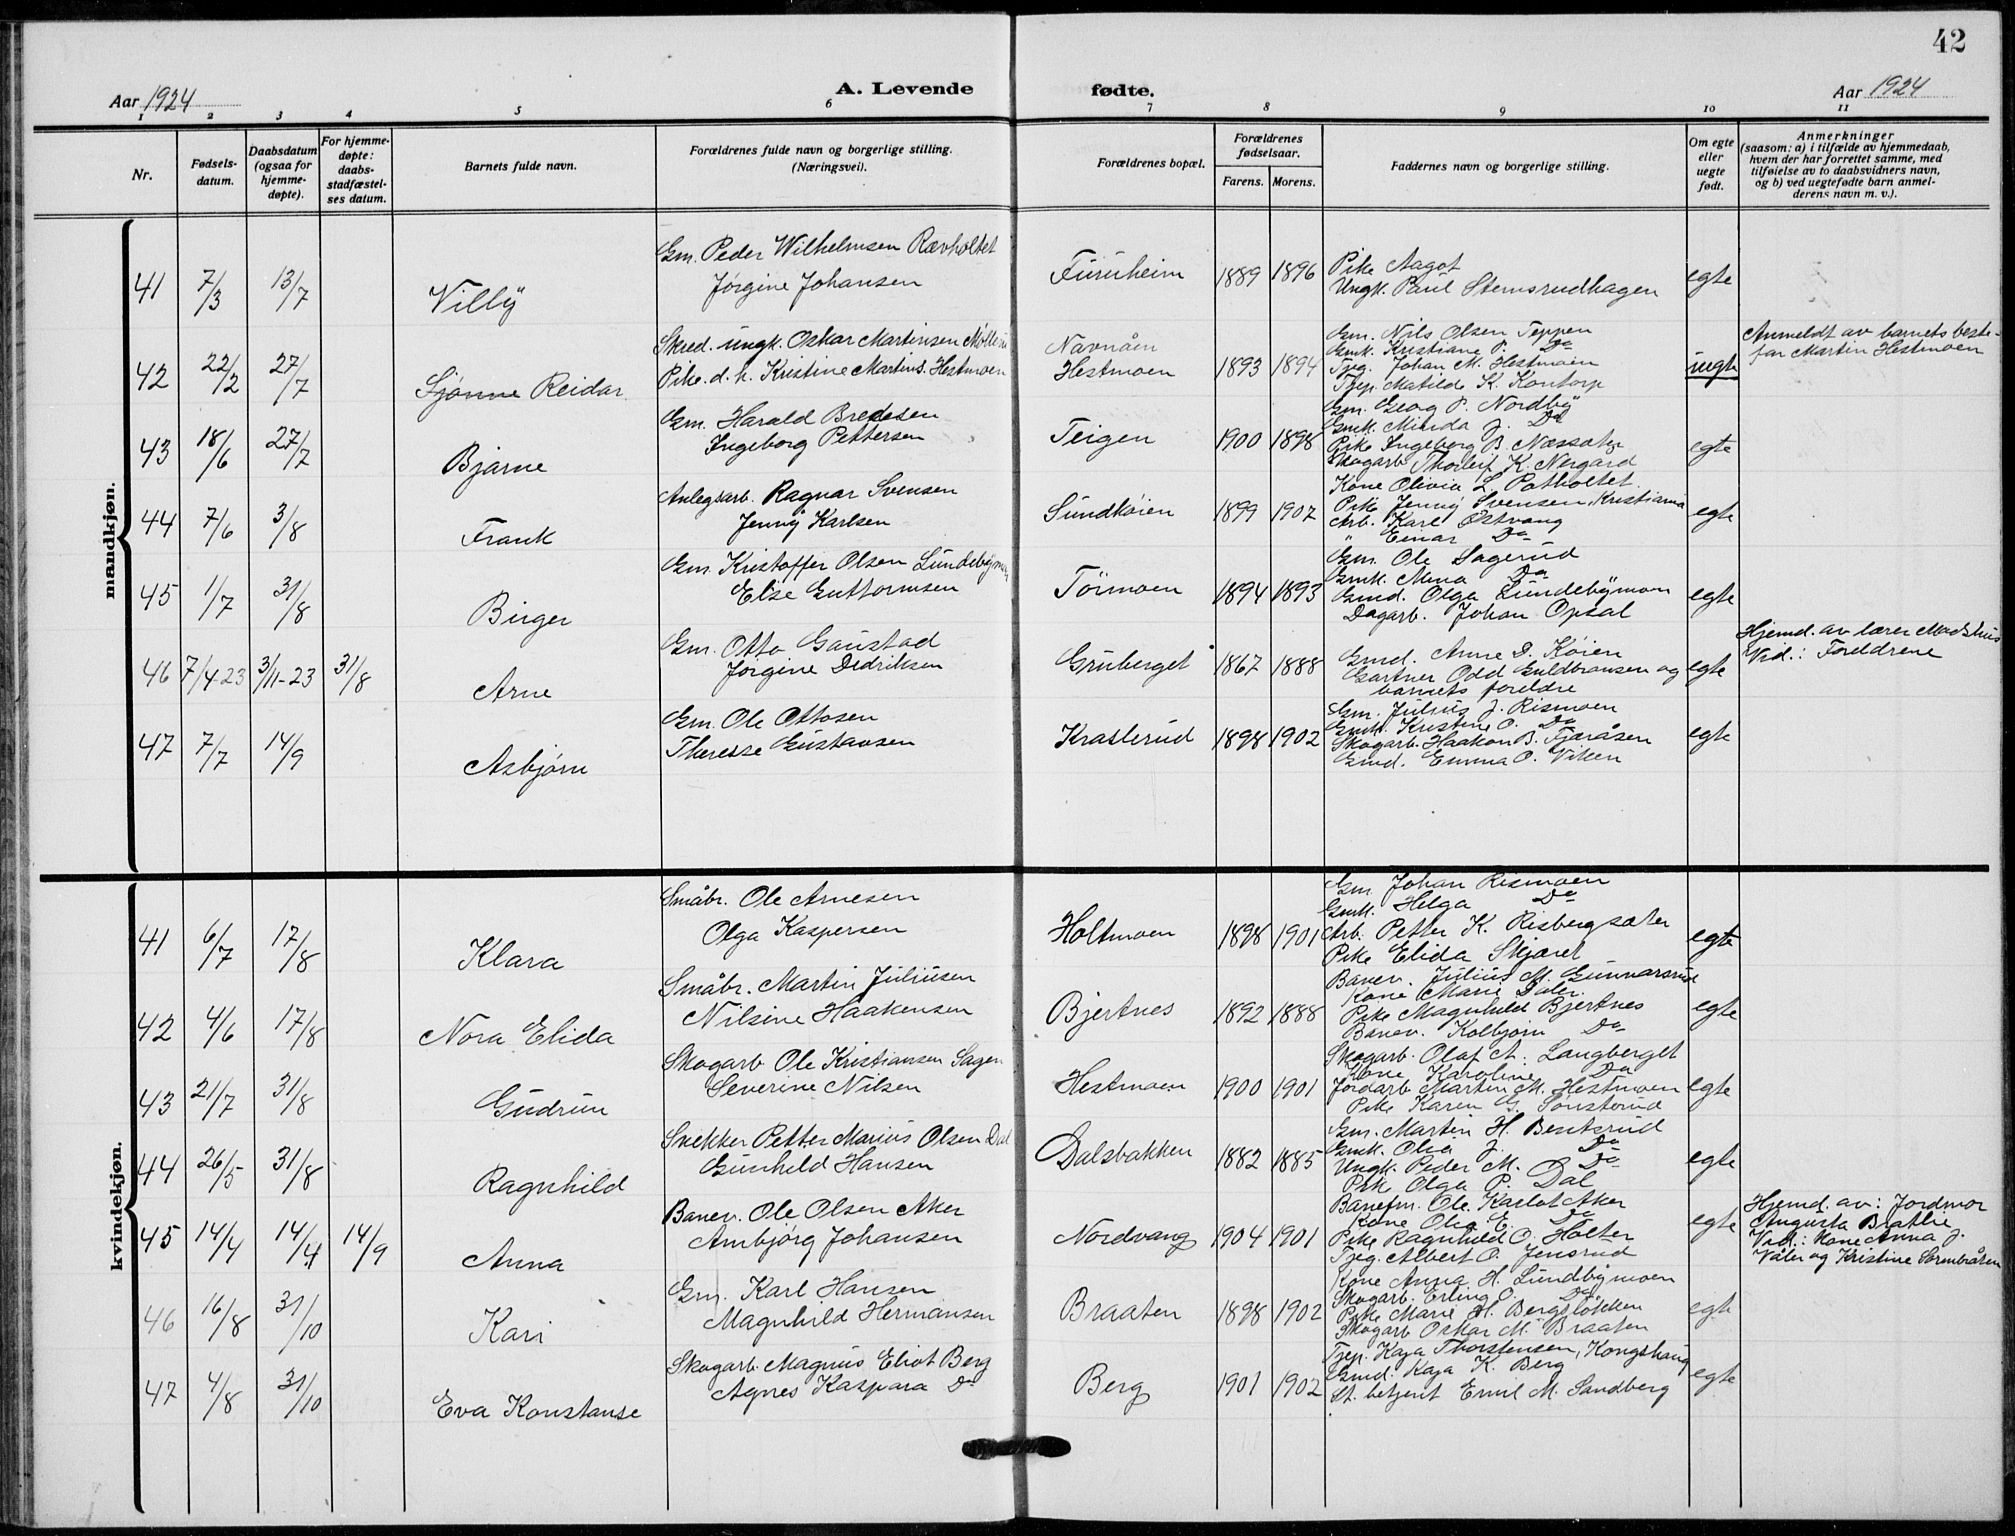 42
Aar 1924
A. Levende
fødte.
Aar 1924
1 2 3 4 5 6 7 8 9 10 11
Nr.
Fødsels-
datum.
Daabsdatum
(ogsaa for
hjemme-
døpte).
For hjemme-
døpte:
daabs-
stadfæstel-
ses datum.
Barnets fulde navn.
Forældrenes fulde navn og borgerlige stilling.
(Næringsvei).
Forældrenes bopæl.
Forældrenes
fødselsaar.
Farens. Morens.
Faddernes navn og borgerlige stilling.
Om egte
eller
uegte
født.
Anmerkninger
(saasom: a) i tilfælde av hjemmedaab,
hvem der har forrettet samme, med
tilføielse av to daabsvidners navn,
og b) ved uegtefødte barn anmel-
derens navn m. v.).
mandkjøn.
41 7/3 13/7 Villÿ
Gm. Peder Wilhelmsen Rævholtet
Jørgine Johansen
Furuheim 1889 1896
Pike Aagot
Ungk. Paul Stemsrudhagen
egte
42 22/2 27/7 Sjønne Reidar
Skred. ungk. Oskar Martinsen
Pike. d. h. Kristine Martins. Hestmoen
Navnåen
Hestmoen 1893 1894
Gm. Nils Olsen Teppen
Gmk. Kristiane P. Do
Tjeg. Johan M. Hestmoen
Tjep. Matilde K. Kontorp
uegte
Anmeldt av barnets beste-
far Martin Hestmoen
43 18/6 27/7 Bjarne
Gm. Harald Bredesen
Ingeborg Pettersen
Teigen 1900 1898
Gm. Georg P. Nordby
Gmk. Minda J. Do
Pike Ingeborg B. Næssæter
Skogarb. Thorleif K. Nergård
egte
44 7/6 3/8 Frank
Anlegsarb. Ragnar Svensen
Jenny Karlsen
Sundkøien 1899 1907
Kone Olivia L. Potholtet
Pike Jenny Svensen, Kristiania
Arb. Karl Østvang
" Einar Do
egte
45 1/7 31/8 Birger
Gm. Kristoffer Olsen Lundebymoen
Elise Guttormsen
Tørmoen 1894 1893
Gm. Ole Sagerud
Gmk. Mina Do
Gmd. Olga Lundebymoen
Dagarb. Johan Opsal
egte
46 7/4-23 3/11-23 31/8 Arne
Gm. Otto Gaustad
Jørgine Dedriksen
Gruberget 1867 1888
Gmd. Anne D. Køien
Gartner Odd Guldbransen og
barnets foreldre
egte
Hjemd. av lærer Madshus
Vid.: Foreldrene
47 7/7 14/9 Asbjørn
Gm. Ole Ottosen
Therese Gustavsen
Krasterud 1898 1902
Gm. Julius J. Rismoen
Gmk. Kristine O. Do
Skogarb. Haakon B. Fjæråsen
Gmd. Emma O. Viken
egte
kvindekjøn.
41 6/7 17/8 Klara
Småbr. Ole Arnesen
Olga Kaspersen
Holtmoen 1898 1901
Gm. Johan Rismoen
Gmk. Helga Do
Arb. Petter K. Risbergsæter
Pike Elida Skjæret
egte
42 4/6 17/8 Nora Elida
Småbr. Martin Juliusen
Nilsine Haakensen
Bjertnes 1892 1888
Banev. Julius M. Gunnarsrud
Kone Marie Daler
Pike Magnhild Bjertnes
Banev. Kolbjørn Do
egte
43 21/7 31/8 Gudrun
Skogarb. Ole Kristiansen Sagen
Severine Nilsen
Hestmoen 1900 1901
Skogarb. Olaf A. Langberget
Kone Karoline Do
Jordarb. Martin M. Hestmoen
Pike Karen G. Sønsterud
egte
44 26/5 31/8 Ragnhild
Snekker Petter Marius Olsen Dal
Gunhild Hansen
Dalsbakken 1882 1885
Gm. Martin H. Bentsrud
Gmk. Olia J. Do
Ungk. Peder M. Do
Pike Olga P. Dal
egte
45 14/4 14/4 14/9 Anna
Banev. Ole Olsen Aker
Ambjørg Johansen
Nordvang 1904 1901
Banefm. Ole Karlot Aker
Kone Olia E. Do
Pike Ragnhild O. Holter
Tjeg. Albert O. Jensrud
egte
Hjemd. av: Jordmor
Augusta Bratlie
Vid.: Kone Anna J.
Våler og Kristine Sørmbråten
46 16/8 31/10 Kari
Gm. Karl Hansen
Magnhild Hermansen
Braaten 1898 1902
Kone Anna H. Lundbymoen
Skogarb. Erling O. Do
Pike Marie H. Bergsløkken
Skogarb Oskar M. Braaten
egte
47 4/8 31/10 Eva Konstanse
Skogarb. Magnus Eliot Berg
Agnes Kaspara Do
Berg 1901 1902
Tjep. Kaja Thorstensen, Kongshaug
Gmd. Kaja K. Berg
St. betjent Emil M. Sandberg
egte